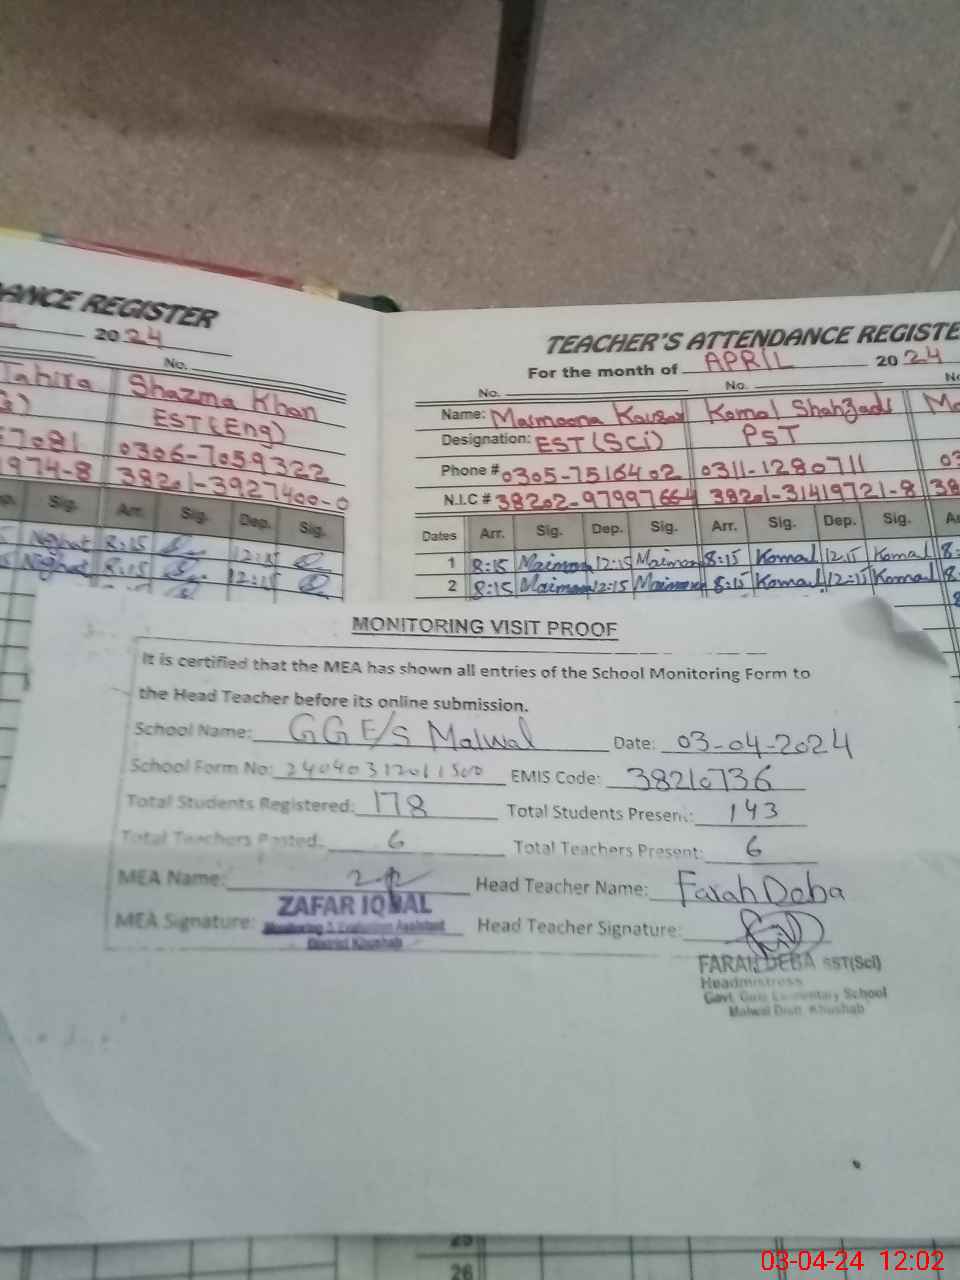 ANCE REGISTER
2024
No.
Tahira Shazma Khan
EST(Eng)
7081 0306-7059322
1974-8 38201-3927400-0
Sig. Arr. Sig. Dep. Sig.
Nighat 8:15 12:15
Nighat 8:15 12:15
TEACHER'S ATTENDANCE REGISTE
For the month of APRIL 2024
No. No. No
Name: Maimoona Kousar Komal Shahzadi
Designation: EST(Sci) PST
Phone # 0305-7516402 0311-1280711 03
N.I.C # 38202-9799766-4 38201-31419721-8 38
Dates Arr. Sig. Dep. Sig. Arr. Sig. Dep. Sig. Ar
1 8:15 Maimoon 12:15 Maimoon 8:15 Komal 12:15 Komal 8:
2 8:15 Maimoon 12:15 Maimoon 8:15 Komal 12:15 Komal 8:
MONITORING VISIT PROOF
It is certified that the MEA has shown all entries of the School Monitoring Form to
the Head Teacher before its online submission.
School Name: GGE/S Malwal Date: 03-04-2024
School Form No: EMIS Code: 38210736
Total Students Registered: 178 Total Students Present: 143
Total Teachers Posted: 6 Total Teachers Present: 6
MEA Name: Head Teacher Name: Farah Deba
MEA Signature: ZAFAR IQBAL Head Teacher Signature:
Monitoring & Evaluation Assistant
District Khushab
FARAH DEBA SST(Sci)
Headmistress
Govt. Girls Elementary School
Malwal Distt. Khushab
25
26
03-04-24 12:02